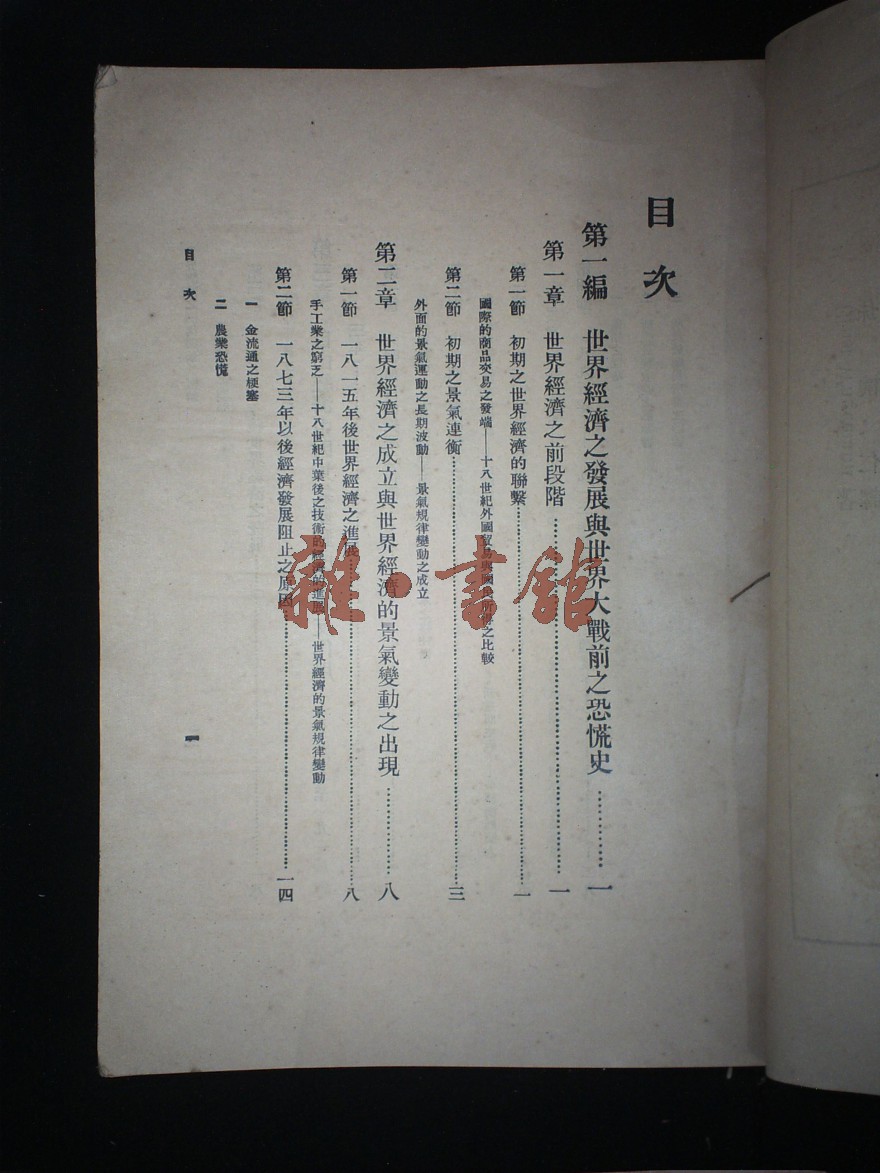 目次
第一編 世界經濟之發展與世界大戰前之恐慌史…………一
第一章 世界經濟之前段階…………一
第一節 初期之世界經濟的聯繫…………一
國際的商品交易之發端——十八世紀外國貿易與國民所得之比較
第二節 初期之景氣連衡…………三
外面的景氣運動之長期波動——景氣規律變動之成立
第二章 世界經濟之成立與世界經濟的景氣變動之出現…………八
第一節 一八一五年後世界經濟之進展…………八
手工業之窮乏——十八世紀中葉後之技術的經濟的進展——世界經濟的景氣規律變動
第二節 一八七三年以後經濟發展阻止之原因…………一四
一 金流通之梗塞
二 農業恐慌
目次
一
雜·書館